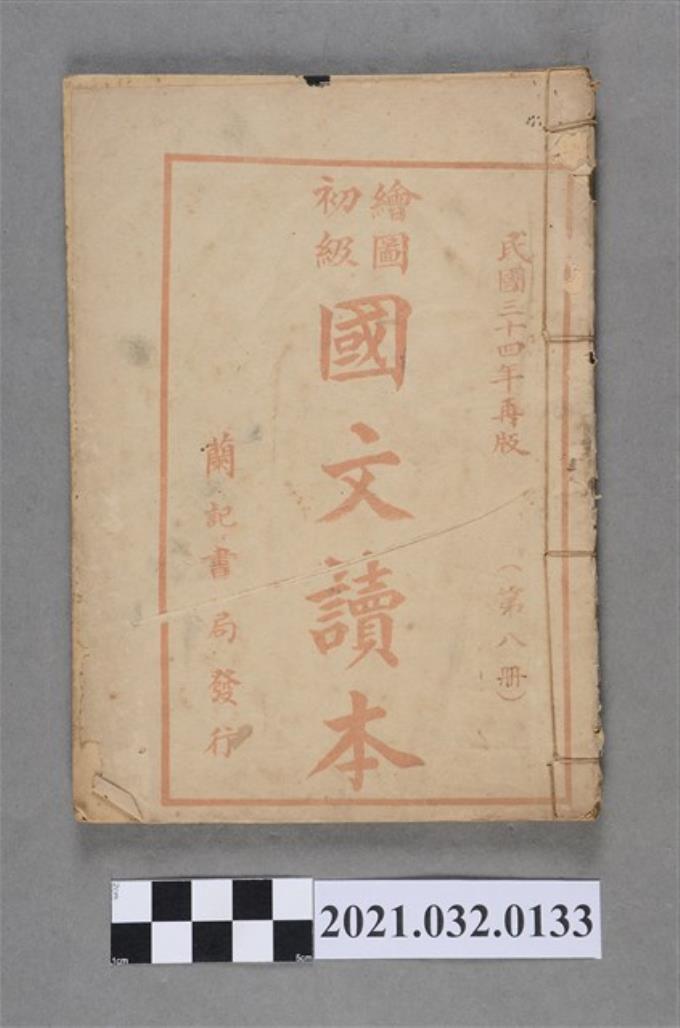 民國三十四年再版
（第八冊）
繪圖
初級
國文讀本
蘭記書局發行
1cm
5cm
2021.032.0133